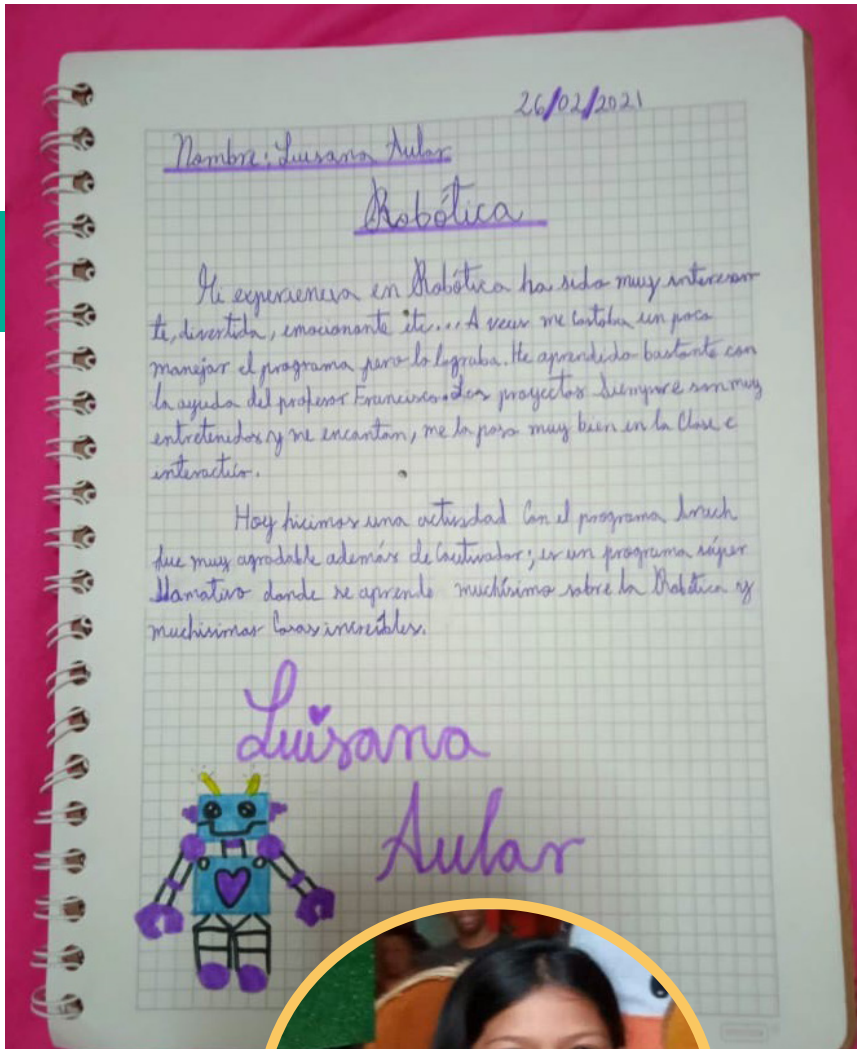 26/02/2021
Nombre: Luisana Aular
Robótica
Mi experiencia en Robótica ha sido muy interesan
te, divertida, emocionante etc... A veces me costaba un poco
manejar el programa pero lo lograba. He aprendido bastante con
la ayuda del profesor Francisco. Los proyectos siempre son muy
entretenidos y me encantan, me la paso muy bien en la Clase e
Hoy hicimos una actividad con el programa
fue muy agradable además de cautivador; es un programa súper
llamativo donde se aprende muchísimo sobre la Robótica y
muchisimas cosas increíbles.
Luisana
Aular